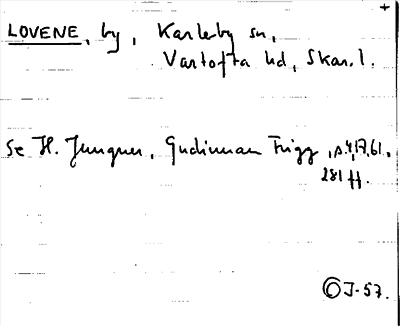 LOVENE, by, Karleby sn,
Vartofta hd, Skar.l.
Se H. Jungner, Gudinnan Frigg, s.4,17,61,
281 ff.
© J-57.